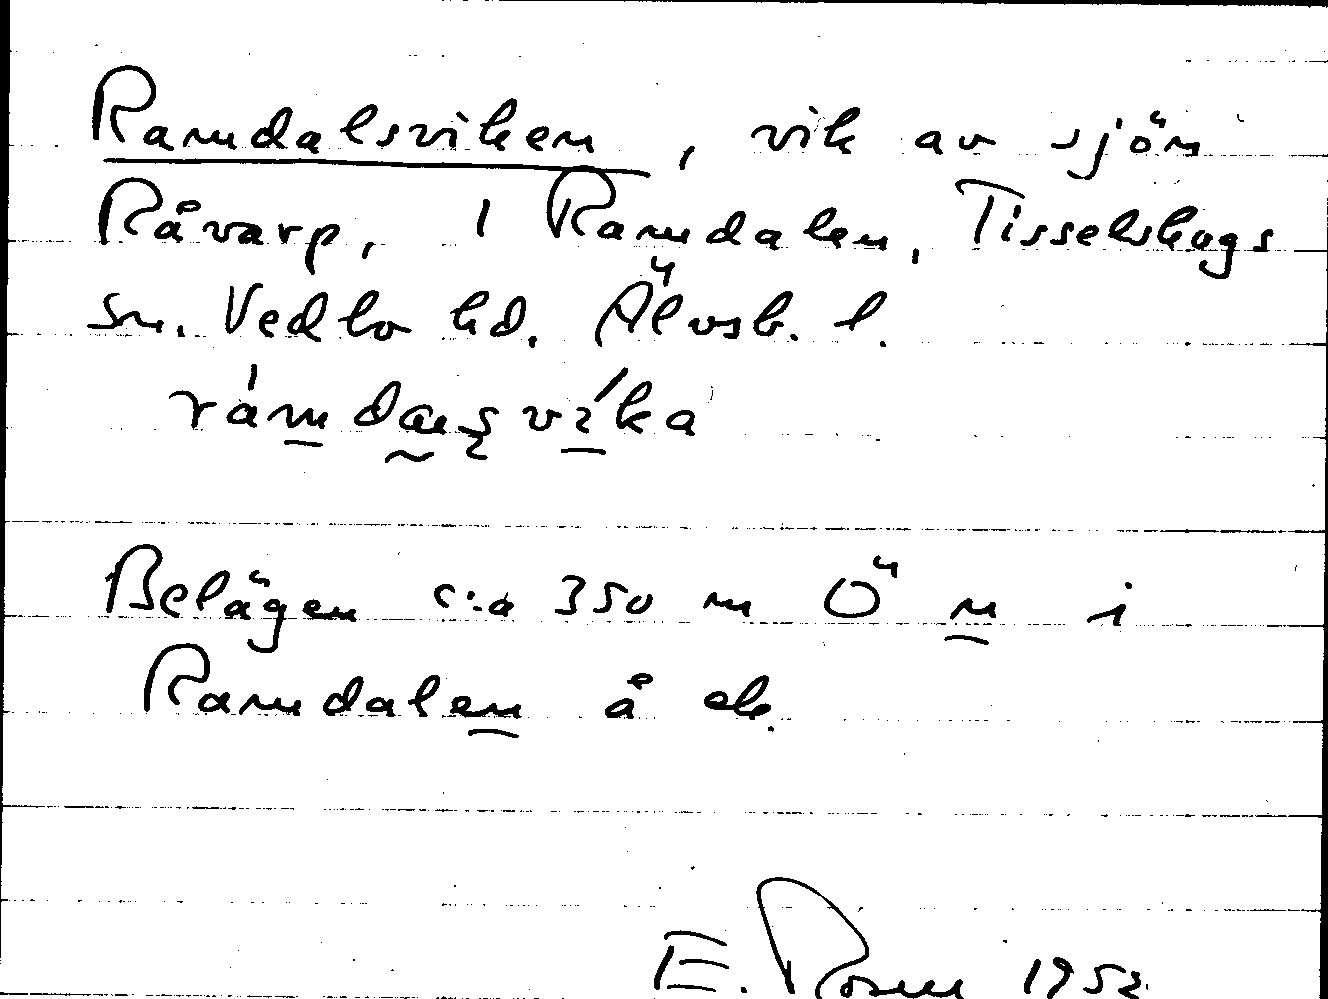 Ramdalsviken, vik av sjön
Råvarp, 1 Ramdalen, Tisselskogs
sn. Vedbo hd. Älvsb. l.
Belägen c:a 350 m Ö n i
Ramdalen å ek.
E. 1952